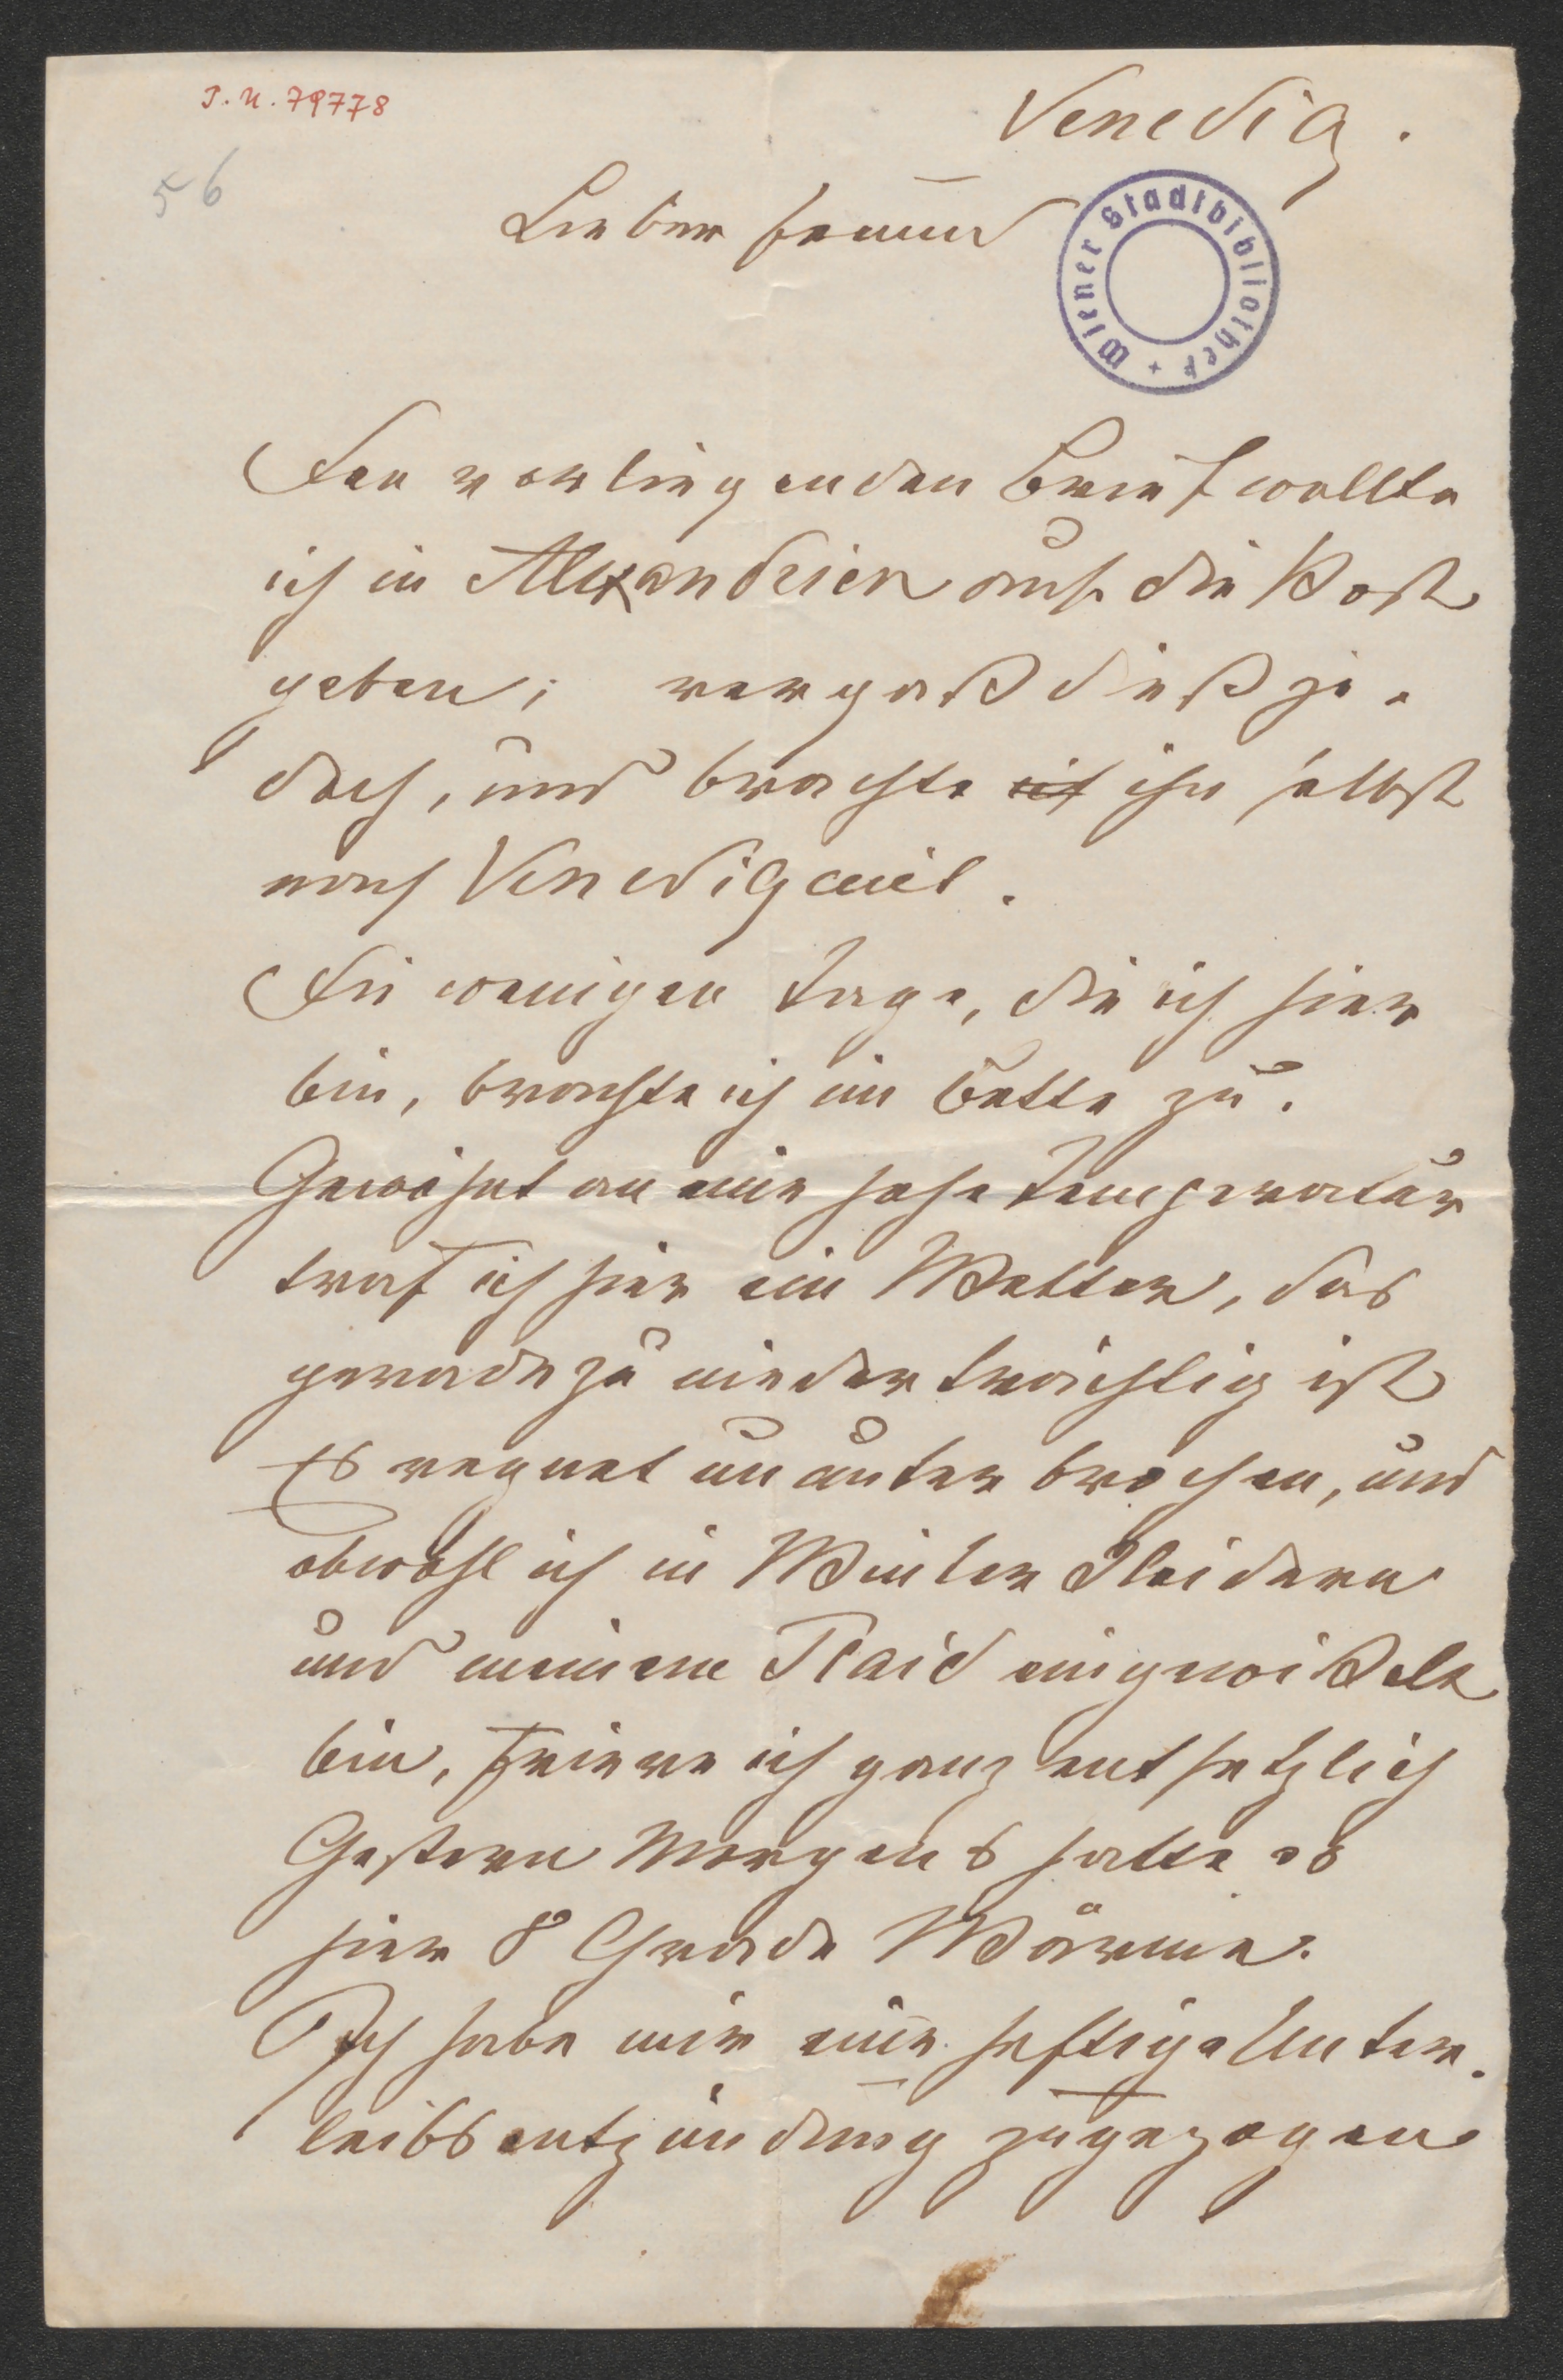 J. N. 79778
56
Venedig.
Lieber Freund
Wiener Stadtbibliothek
Den vorliegenden Brief wollte
ich in Alexandrien auf die Post
geben; vergaß dieß je-
doch, und brachte ihn selbst
nach Venedig mit.
Die wenigen Tage, die ich hier
bin, brachte ich im Bette zu.
Gewöhnt an eine hohe Temperatur
traf ich hier ein Wetter, das
geradezu niederträchtig ist
Es regnet ununterbrochen, und
obwohl ich in Winter Kleidern
und meinem Plaid eingewikelt
bin, friere ich ganz entsetzlich
Gestern Morgens hatte es
hier 8 Grade Wärme.
Ich habe mir eine heftige Unter-
leibsentzündung zugezogen